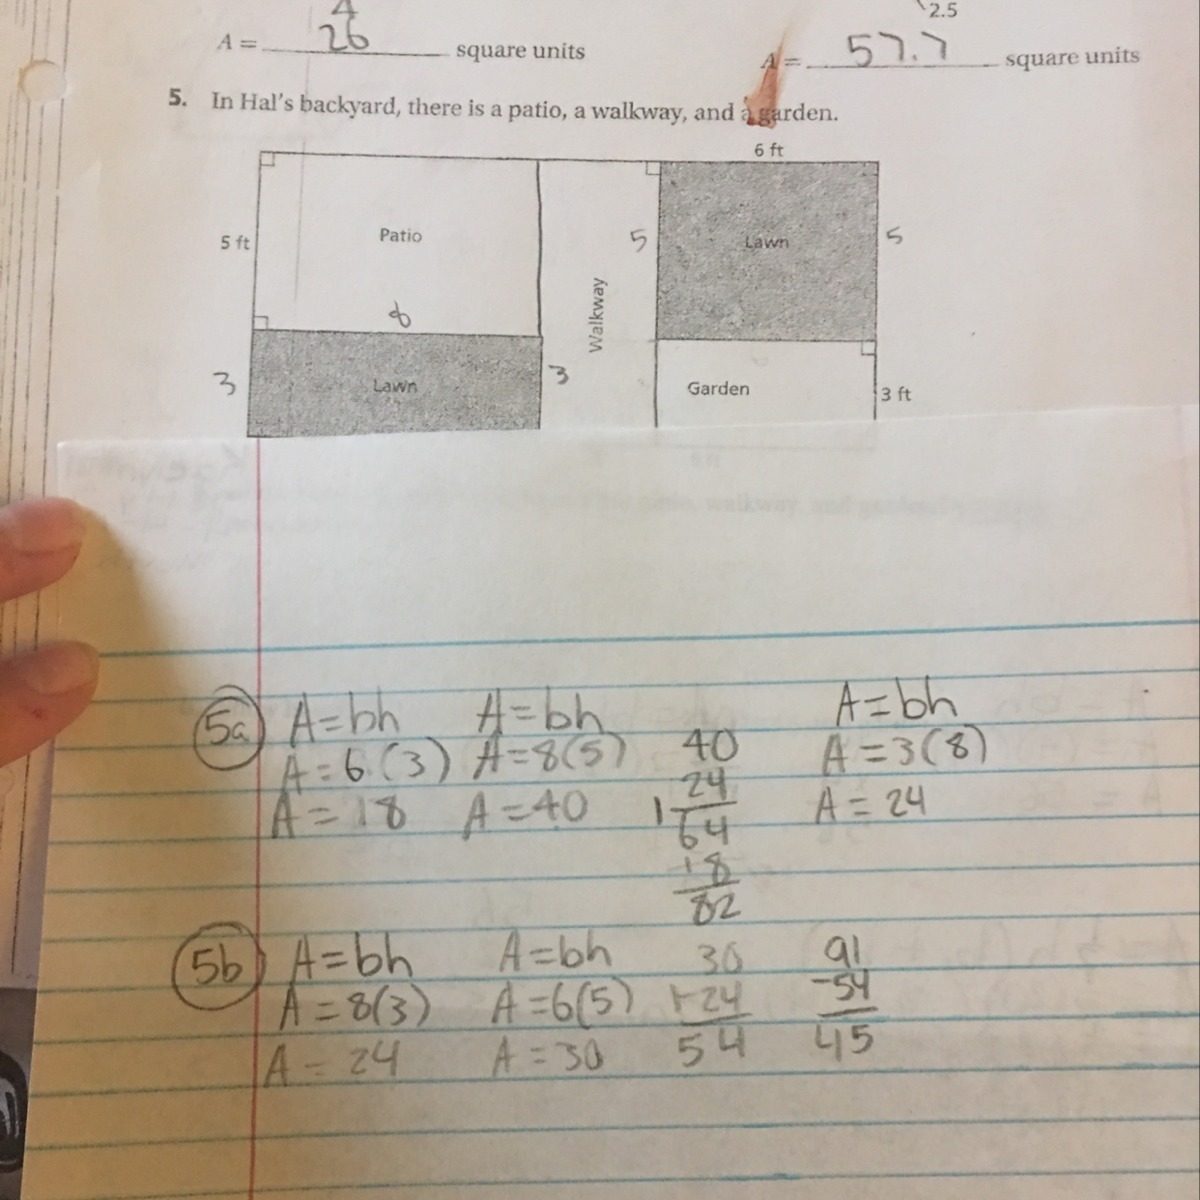 4
2.5
A = 26 square units
A = 57.7 square units
5. In Hal's backyard, there is a patio, a walkway, and a garden.
6 ft
5 ft
Patio
5
Lawn
5
Walkway
8
3
Lawn
3
Garden
3 ft
5a A=bh A=bh A=bh
A=6(3) A=8(5) 40 A=3(8)
A=18 A=40 1 24 A=24
64
18
82
5b A=bh A=bh 30 91
A=8(3) A=6(5) +24 -54
A=24 A=30 54 45